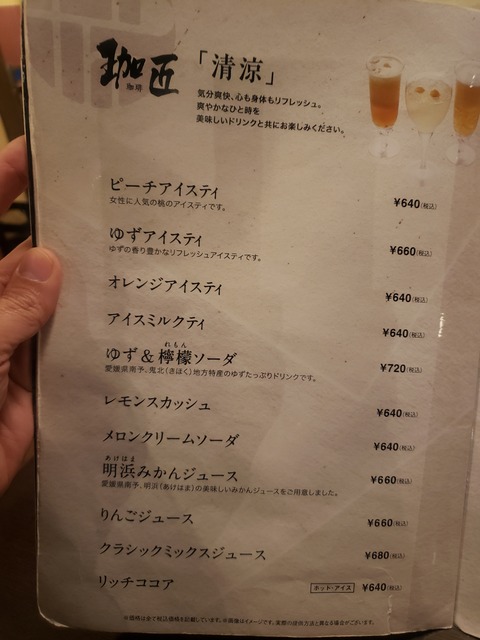 珈匠
珈琲
「清涼」
気分爽快、心も身体もリフレッシュ。
爽やかなひと時を
美味しいドリンクと共にお楽しみください。
ピーチアイスティ ¥640(税込)
女性に人気の桃のアイスティです。
ゆずアイスティ ¥660(税込)
ゆずの香り豊かなリフレッシュアイスティです。
オレンジアイスティ ¥640(税込)
アイスミルクティ ¥640(税込)
れもん
ゆず&檸檬ソーダ ¥720(税込)
愛媛県南予、鬼北(きほく)地方特産のゆずたっぷりドリンクです。
レモンスカッシュ ¥640(税込)
メロンクリームソーダ ¥640(税込)
あけはま
明浜みかんジュース ¥660(税込)
愛媛県南予、明浜(あけはま)の美味しいみかんジュースをご用意しました。
りんごジュース ¥660(税込)
クラシックミックスジュース ¥680(税込)
リッチココア ホット・アイス ¥640(税込)
※価格は全て税込価格を記載しています。※画像はイメージです。実際の提供方法と異なる場合がございます。